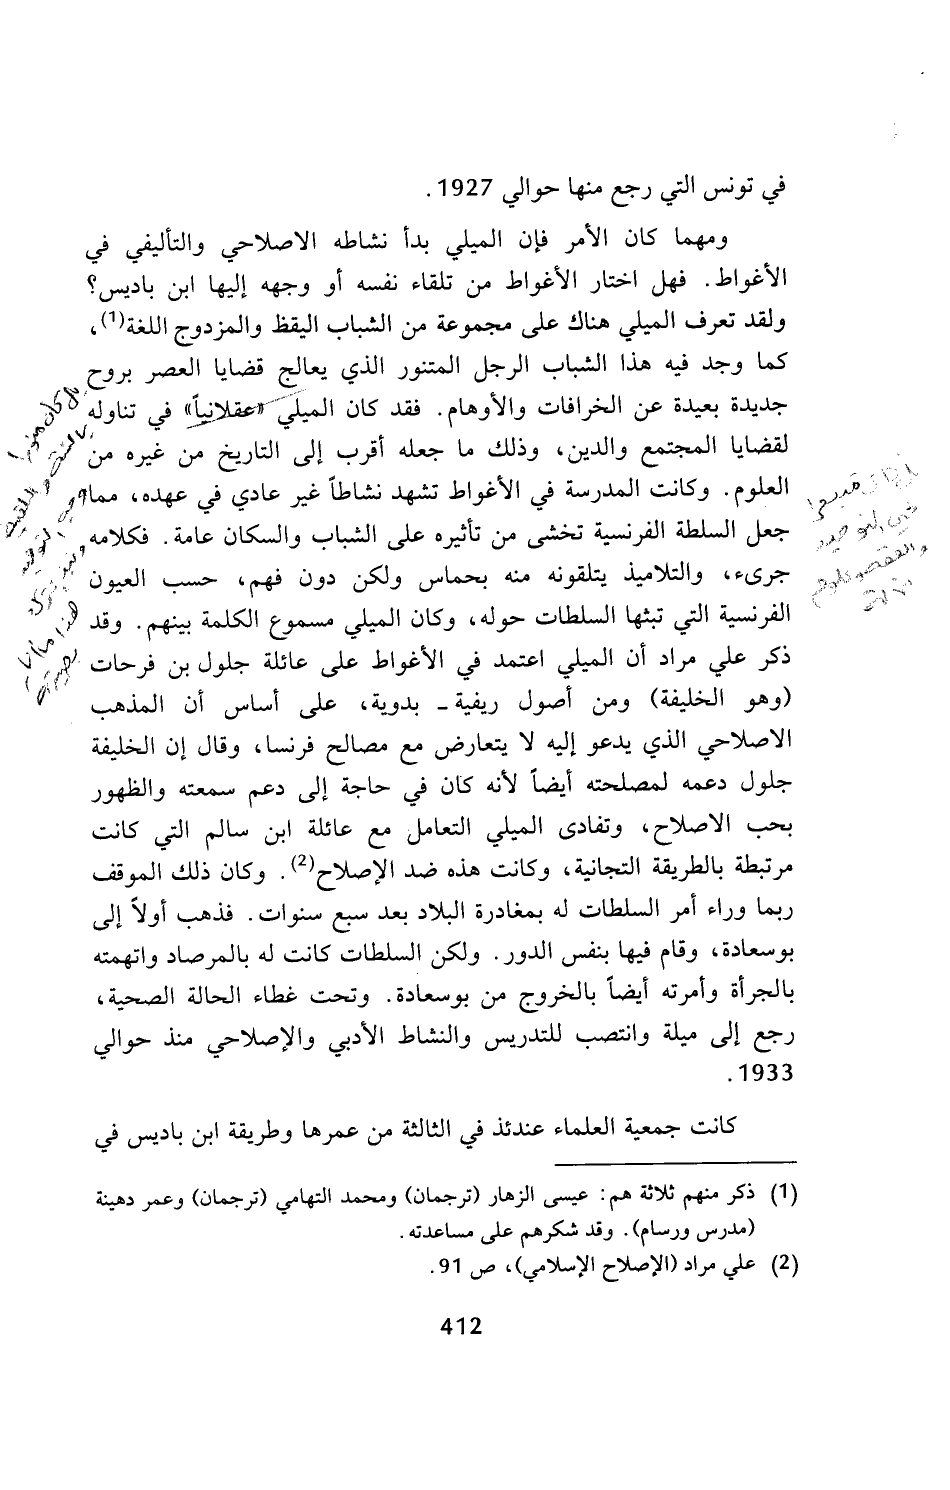 في تونس التي رجع منها حوالي 1927 .
ومهما كان الأمر فإن الميلي بدأ نشاطه الاصلاحي والتأليفي في
الأغواط. فهل اختار الأغواط من تلقاء نفسه أو وجهه إليها ابن باديس؟
ولقد تعرف الميلي هناك على مجموعة من الشباب اليقظ والمزدوج اللغة(1)،
كما وجد فيه هذا الشباب الرجل المتنور الذي يعالج قضايا العصر بروح
جديدة بعيدة عن الخرافات والأوهام. فقد كان الميلي «عقلانياً» في تناوله
لقضايا المجتمع والدين، وذلك ما جعله أقرب إلى التاريخ من غيره من
العلوم. وكانت المدرسة في الأغواط تشهد نشاطاً غير عادي في عهده، مما
جعل السلطة الفرنسية تخشى من تأثيره على الشباب والسكان عامة. فكلامه
جرىء، والتلاميذ يتلقونه منه بحماس ولكن دون فهم، حسب العيون
الفرنسية التي تبثها السلطات حوله، وكان الميلي مسموع الكلمة بينهم. وقد
ذكر علي مراد أن الميلي اعتمد في الأغواط على عائلة جلول بن فرحات
(وهو الخليفة) ومن أصول ريفية ـ بدوية، على أساس أن المذهب
الاصلاحي الذي يدعو إليه لا يتعارض مع مصالح فرنسا، وقال إن الخليفة
جلول دعمه لمصلحته أيضاً لأنه كان في حاجة إلى دعم سمعته والظهور
بحب الاصلاح، وتفادى الميلي التعامل مع عائلة ابن سالم التي كانت
مرتبطة بالطريقة التجانية، وكانت هذه ضد الإصلاح(2). وكان ذلك الموقف
ربما وراء أمر السلطات له بمغادرة البلاد بعد سبع سنوات. فذهب أولاً إلى
بوسعادة، وقام فيها بنفس الدور. ولكن السلطات كانت له بالمرصاد واتهمته
بالجرأة وأمرته أيضاً بالخروج من بوسعادة. وتحت غطاء الحالة الصحية،
رجع إلى ميلة وانتصب للتدريس والنشاط الأدبي والإصلاحي منذ حوالي
1933 .
كانت جمعية العلماء عندئذ في الثالثة من عمرها وطريقة ابن باديس في
(1) ذكر منهم ثلاثة هم: عيسى الزهار (ترجمان) ومحمد التهامي (ترجمان) وعمر دهينة
(مدرس ورسام). وقد شكرهم على مساعدته.
(2) علي مراد (الإصلاح الإسلامي)، ص 91.
412